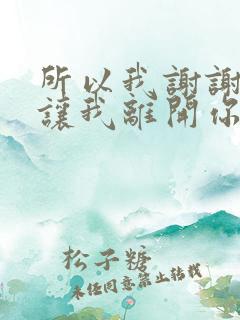 所以我謝謝
讓我離開你
松子糖
未经同意禁止转载